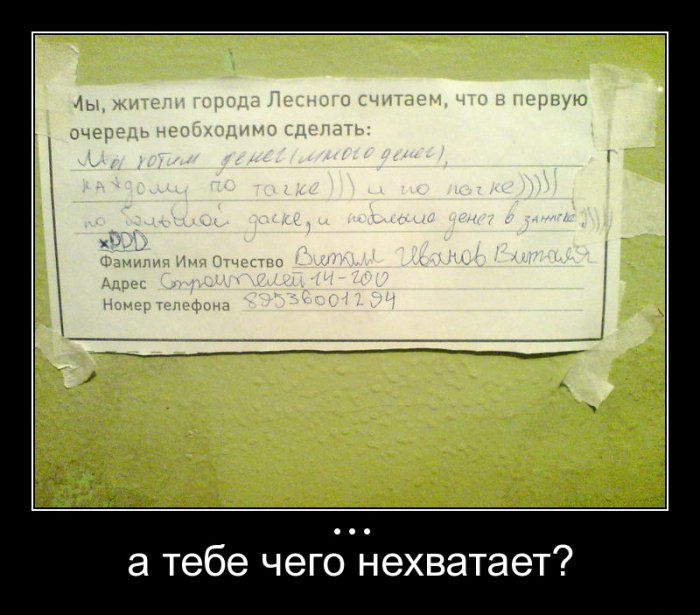 Мы, жители города Лесного считаем, что в первую
очередь необходимо сделать:
Мы хотим денег (много денег),
каждому по тачке))) и по пачке)))))
по большой доске, и побольше денег в заначке)))))
xDDD
Фамилия Имя Отчество Виталя Иванов Виталя
Адрес Строителей 14-200
Номер телефона 89536001294
...
а тебе чего нехватает?